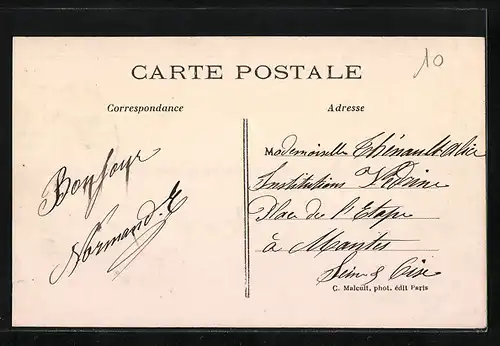 CARTE POSTALE
10
Correspondance
Adresse
Bonjour
Normand. E
Mademoiselle Thénault Alice
Institutions
Place de l'Etape
à Mantes
Seine & Oise
C. Malcuit, phot. édit Paris